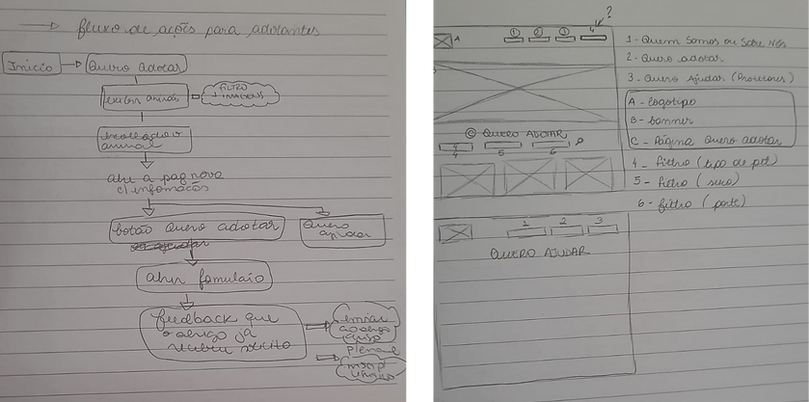 fluxo de ações para adotantes
Início
Quero adotar
exibir animais
FILTRO
+ IMAGENS
escolhe o
animal
abre a pag nova
c/ infomações
botão Quero adotar
Quero
apoiar
abrir fomulário
feedback que
o abrigo já
recebeu
?
A
1
2
3
4
1 - Quem Somos ou Sobre Nós
2 - Quero adotar
3 - Quero Ajudar (Protetores)
A - logotipo
B - banner
C - Página Quero adotar
4 - filtro (tipo de pet)
5 - filtro (sexo)
6 - filtro (porte)
C QUERO ADOTAR
4
5
6
1
2
3
QUERO AJUDAR